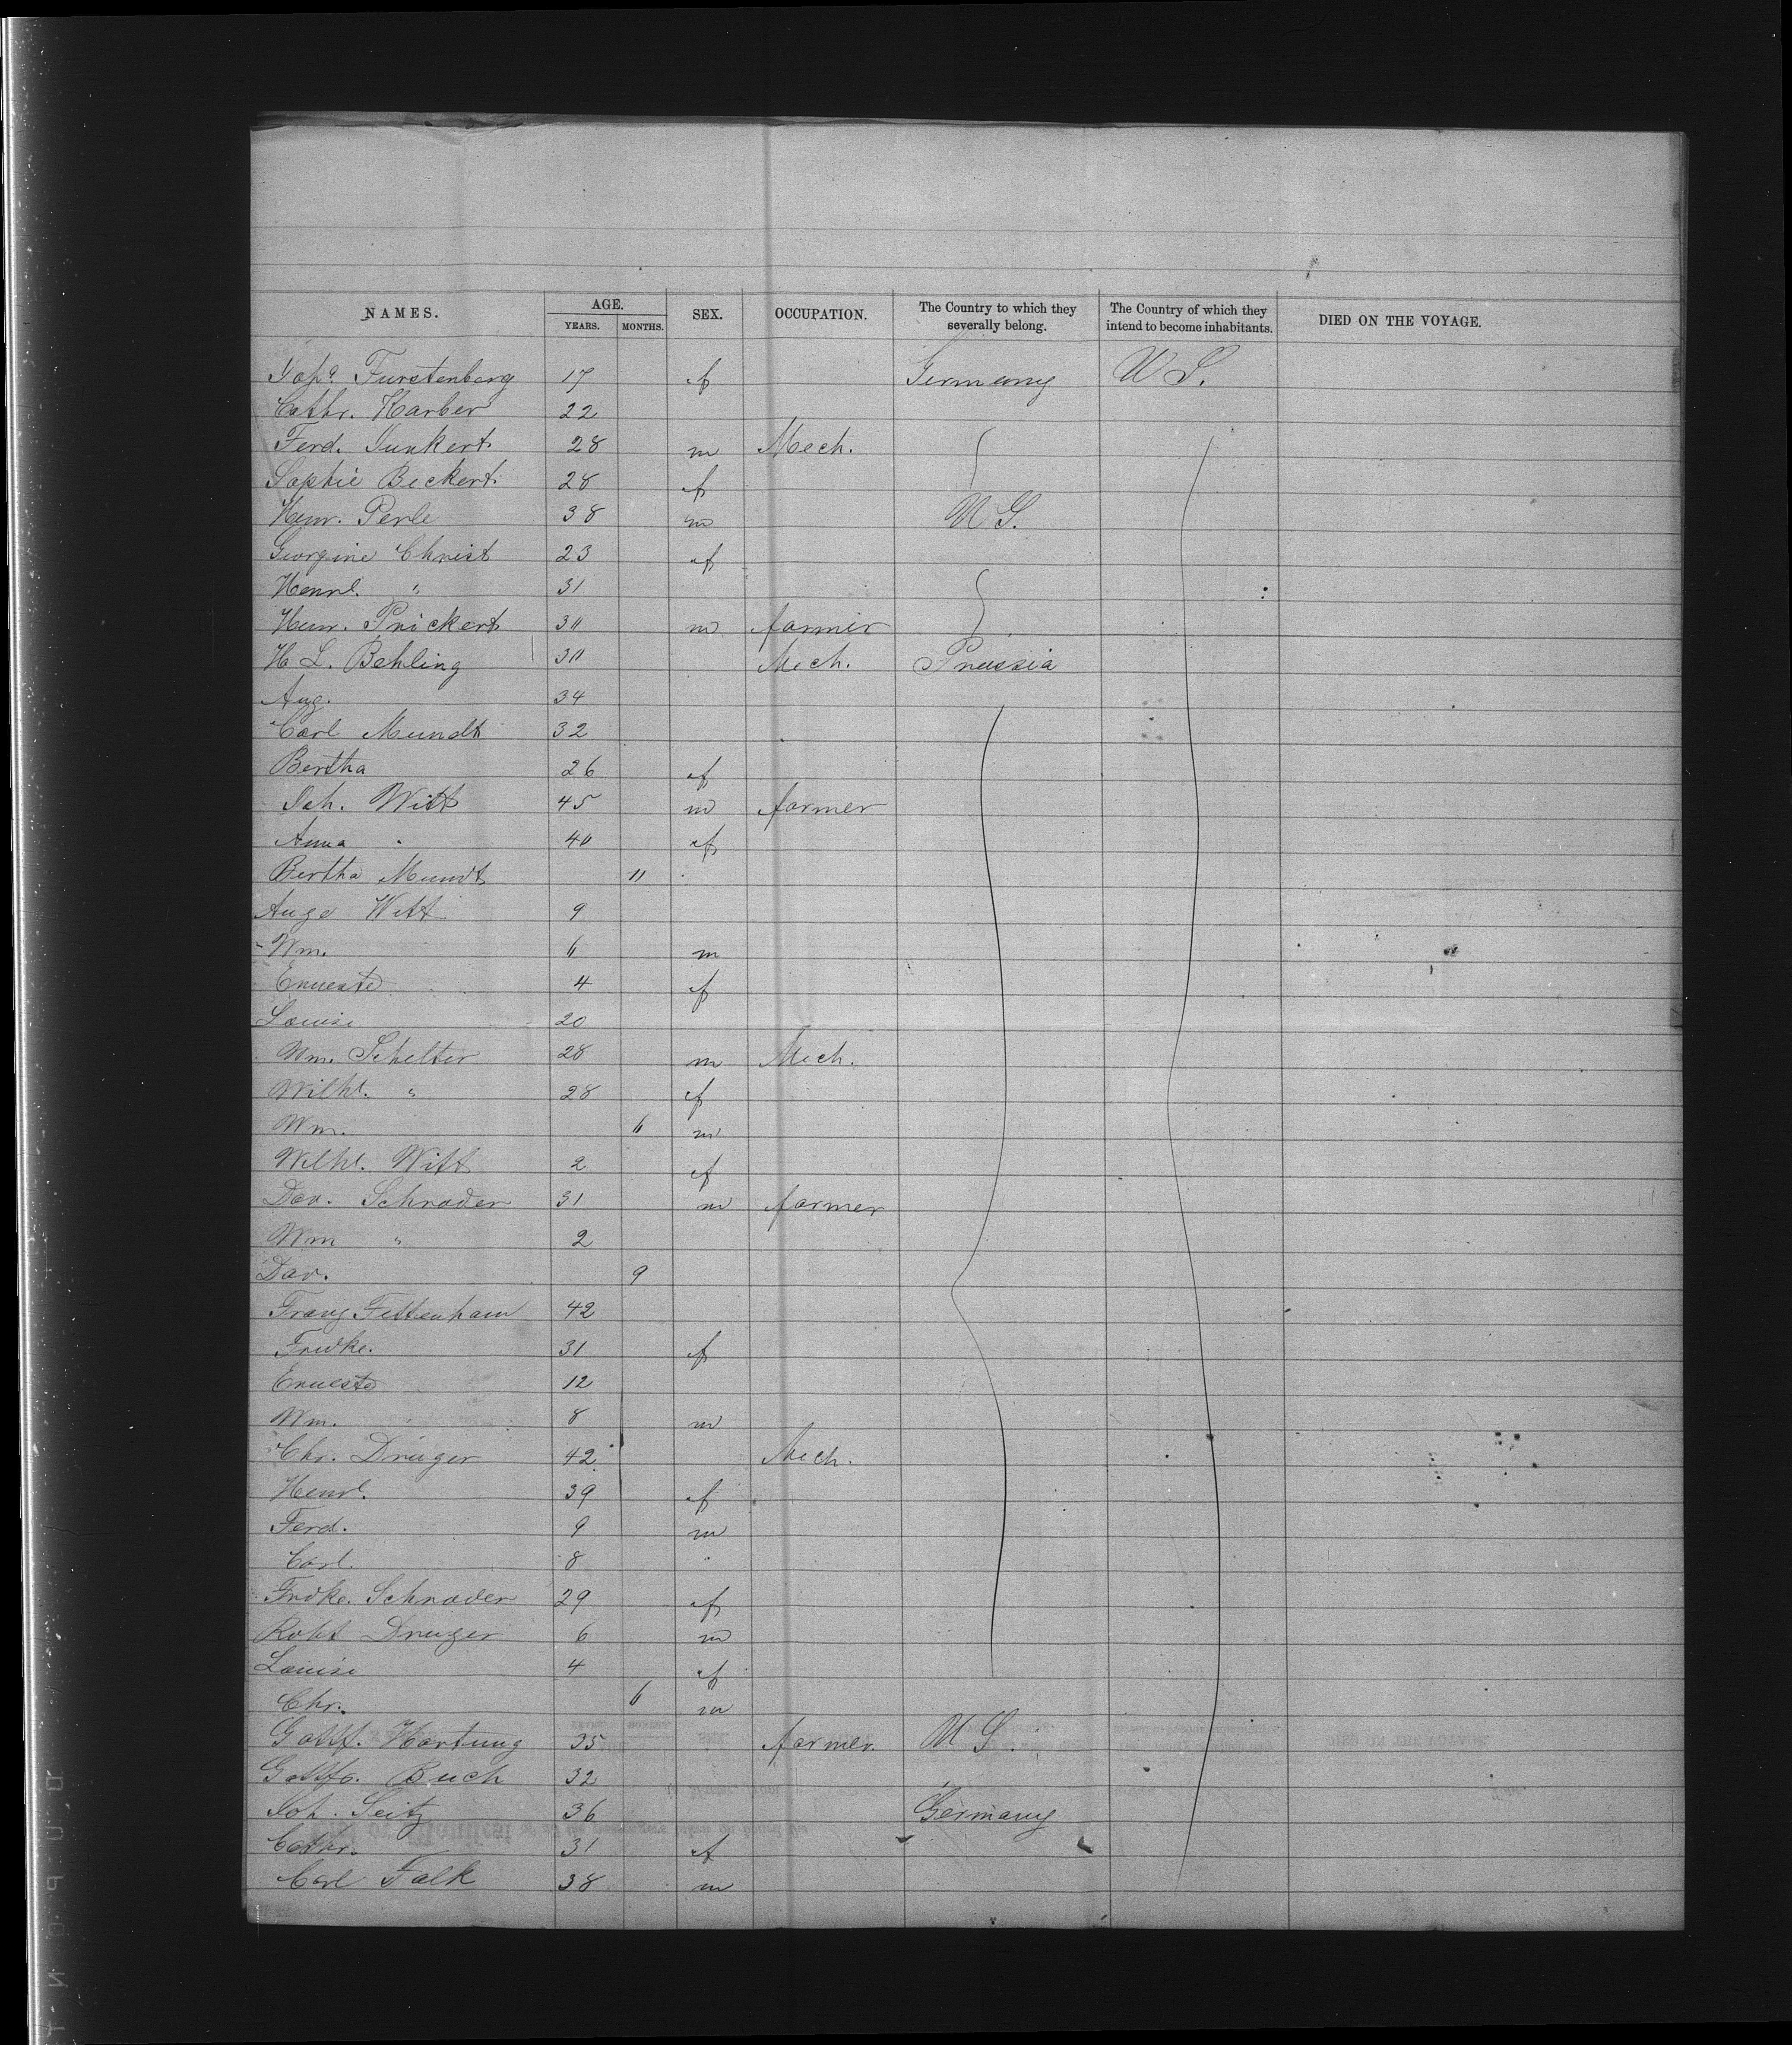 NAMES. AGE. SEX. OCCUPATION. The Country to which they severally belong. The Country of which they intend to become inhabitants. DIED ON THE VOYAGE.
YEARS. MONTHS.
Furstenberg 17 f Germany U S.
Cathr. Karber 22
Ferd. Junkert 28 m Mech.
Sophie Beckert 28 f
Henr. Perle 38 m U S.
Georgine Christ 23 f
Henrl. " 31
Henr. Prickert 30 m farmer
H L. Behling 30 Mech. Prussia
Aug. 34
Carl Mundt 32
Bertha 26 f
Joh. Witt 45 m farmer
Anna " 40 f
Bertha Mundt 11
Auge Witt 9
Wm. 6 m
Erneste 4 f
Louise 20
Wm. Schelter 28 m Mech.
Wilhl. " 28 f
Wm. 6 m
Wilhl. Witt 2 f
Dav. Schrader 31 m farmer
Wm " 2
Dav. 9
Franz Fettenhaur 42
Fredke. 31 f
Erneste 12
Wm. 8 m
Chr. Druger 42 Mech.
Henrl. 39 f
Ferd. 9 m
Carl. 8
Frdke. Schrader 29 f
Robt Druger 6 m
Louise 4 f
Chr. 6 m
Gottf. Hartung 35 farmer. U S.
Buch 32
Joh. Seitz 36 Germany
Cathr. 31 f
Carl Falk 38 m